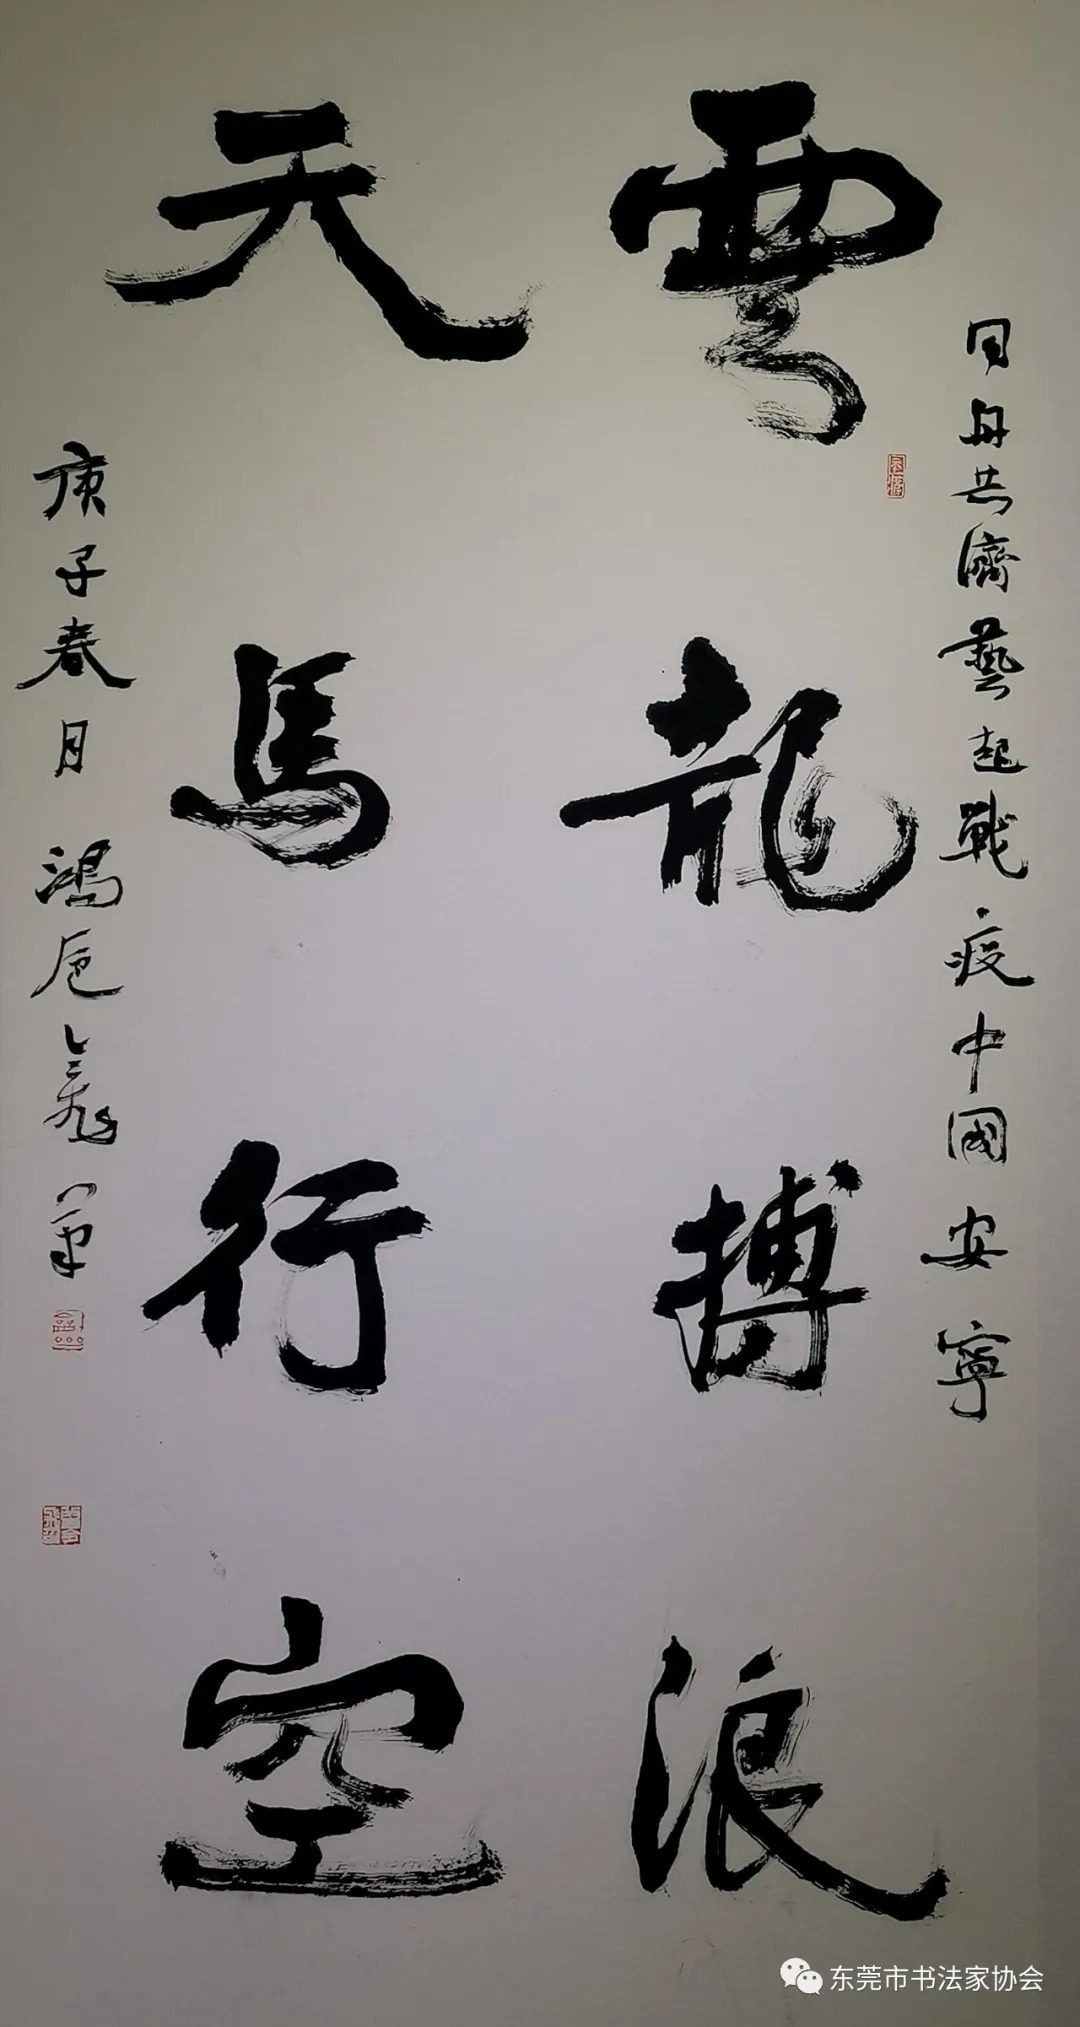 同舟共濟藝起戰疫中國安寧
雲龍搏浪
天馬行空
庚子春月鴻
东莞市书法家协会